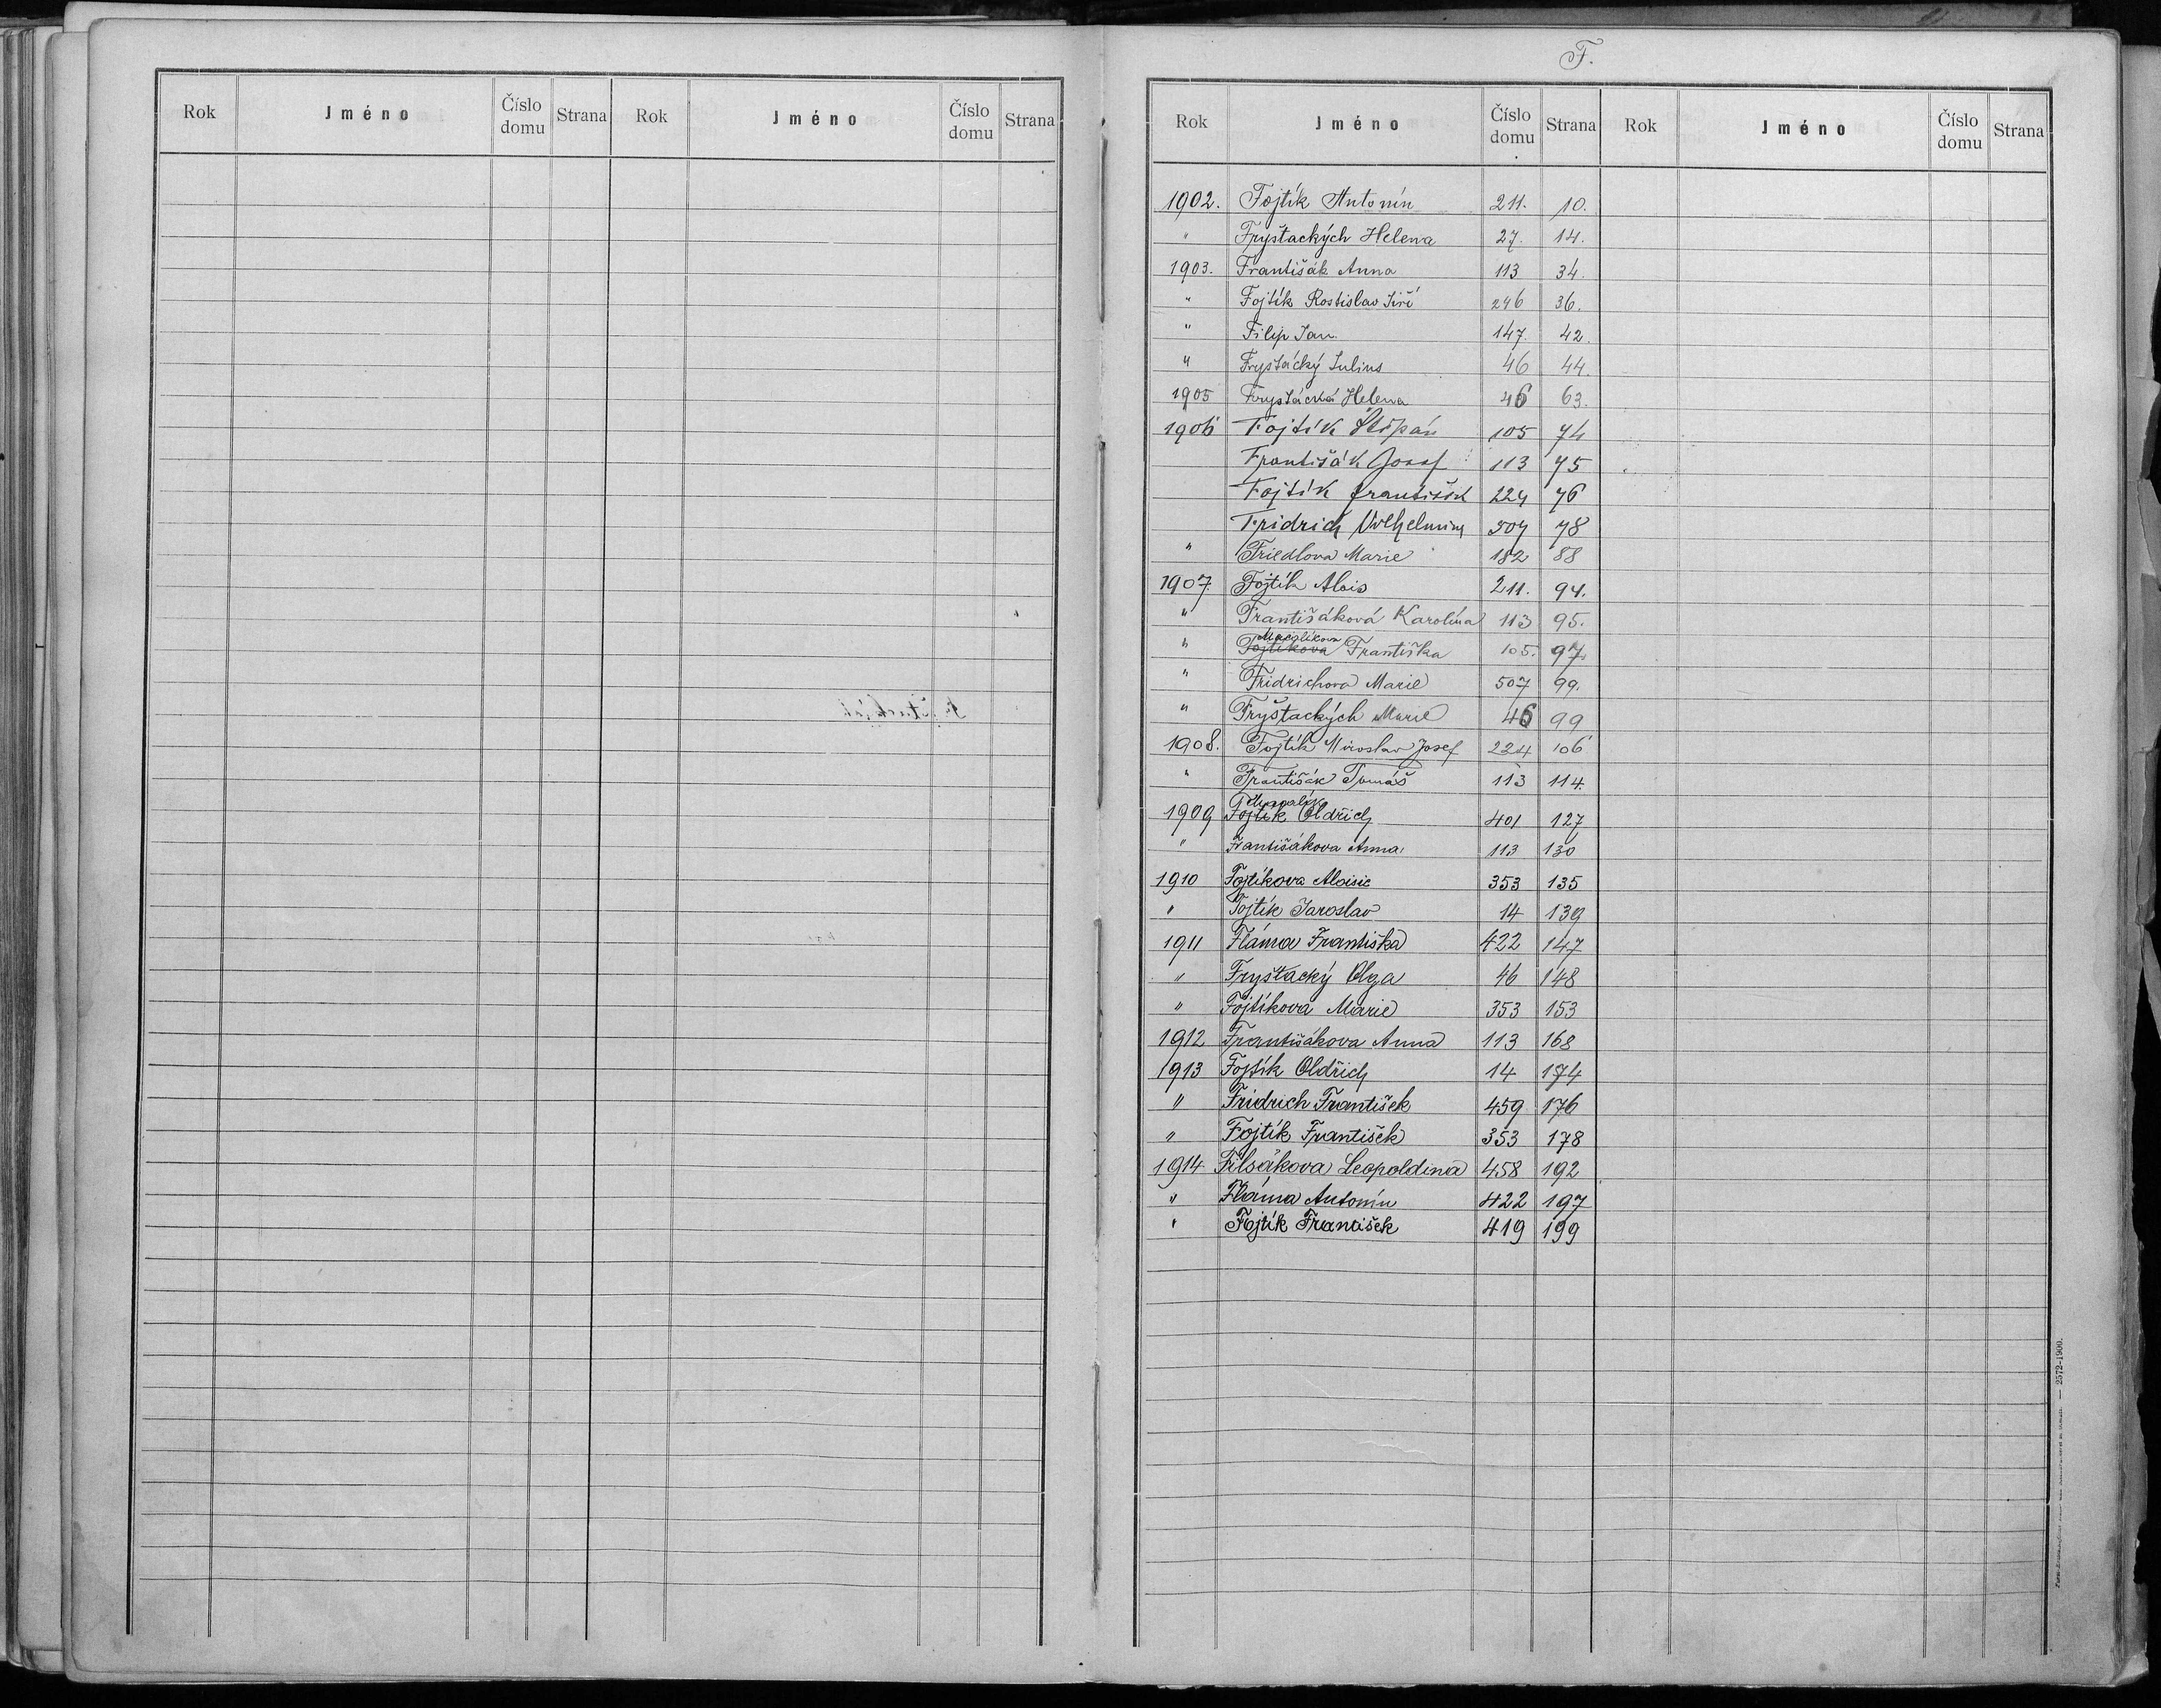 Rok Jméno Číslo domu Strana Rok Jméno Číslo domu Strana
F.
Rok Jméno Číslo domu Strana Rok Jméno Číslo domu Strana
1902. Fojtík Antonín 211. 10.
" Fryštackých Helena 27. 14.
1903. Františák Anna 113 34.
" Fojtík Rostislav Jiří 246 36.
" Filip Jan. 147. 42.
" Fryštácký Julius 46 44.
1905 Fryštácká Helena 46 63.
1906 Fojtík Štěpán 105 74
Františák Josef 113 75
Fojtík František 224 76
Fridrich 507 78
" Friedlova Marie 182 88
1907. Fojtík Alois 211. 94.
" Františáková Karolína 113 95.
" Fojtíkova Františka 105. 97.
" Fridrichova Marie 507 99.
" Fryštackých Marie 46 99
1908. Fojtík Miroslav Josef 224 106
" Františák Tomáš 113 114.
1909 Fojtík Oldřich 401 127
" Františákova Anna. 113 130
1910 Fojtíkova Aloisie 353 135
" Fojtík Jaroslav 14 139
1911 Fláma Františka 422 147
" Fryštacký Olga 46 148
" Fojtíkova Marie 353 153
1912 Františákova Anna 113 168
1913 Fojtík Oldřich 14 174
" Fridrich František 459 176
" Fojtík František 353 178
1914 Filsákova Leopoldina 458 192
" Fláma Antonín 422 197
" Fojtík František 419 199
2572-1900.